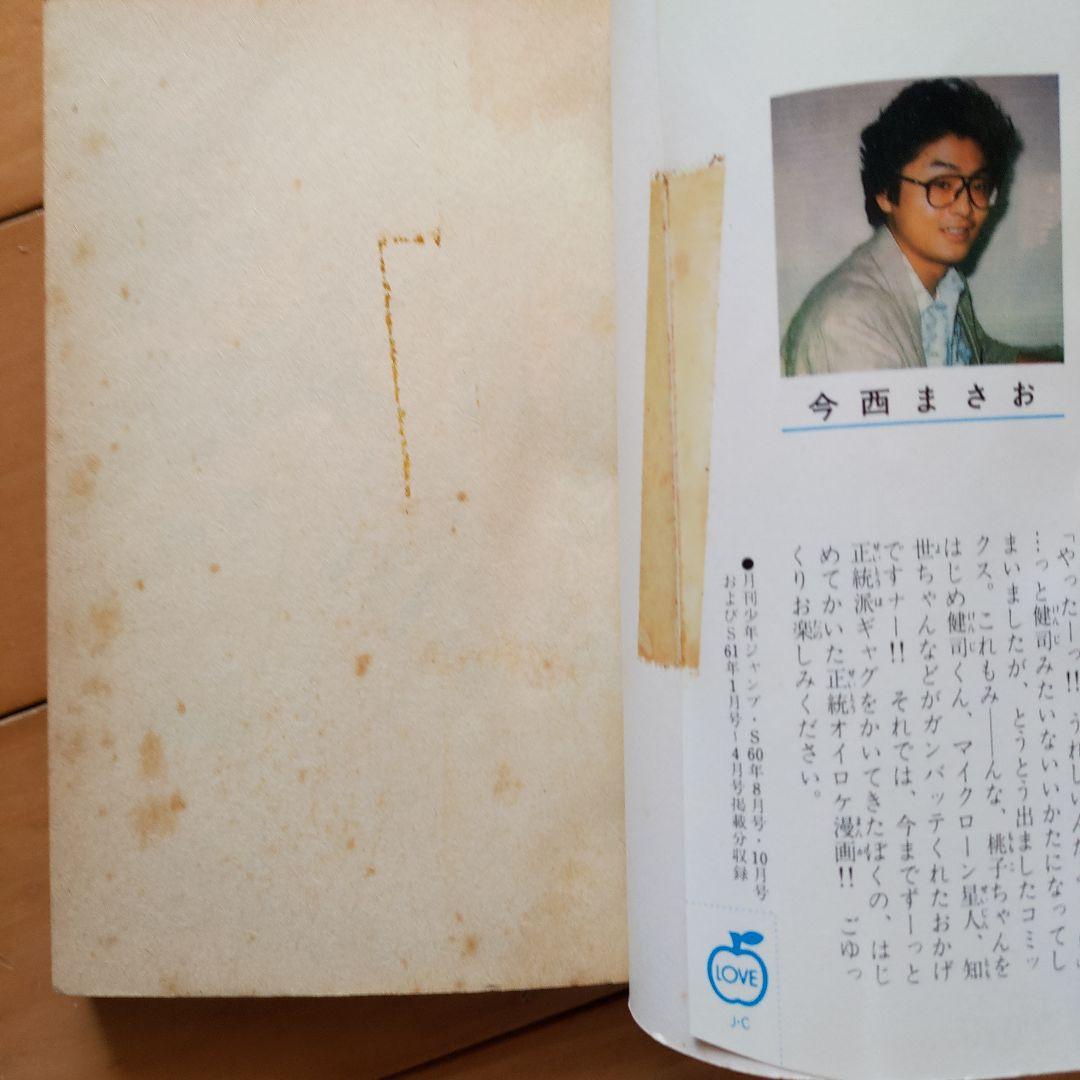 今西まさお
「やったーっ!! うれしいんだ
…っと健司みたいないいかたになってし
まいましたが、とうとう出ましたコミッ
クス。これもみ――んな、桃子ちゃんを
はじめ健司くん、マイクローン星人、知
世ちゃんなどがガンバッテくれたおかげ
ですナー!! それでは、今までずーっと
正統派ギャグをかいてきたぼくの、はじ
めてかいた正統オイロケ漫画!! ごゆっ
くりお楽しみください。
●月刊少年ジャンプ・S60年8月号・10月号
およびS61年1月号~4月号掲載分収録
LOVE
J·C